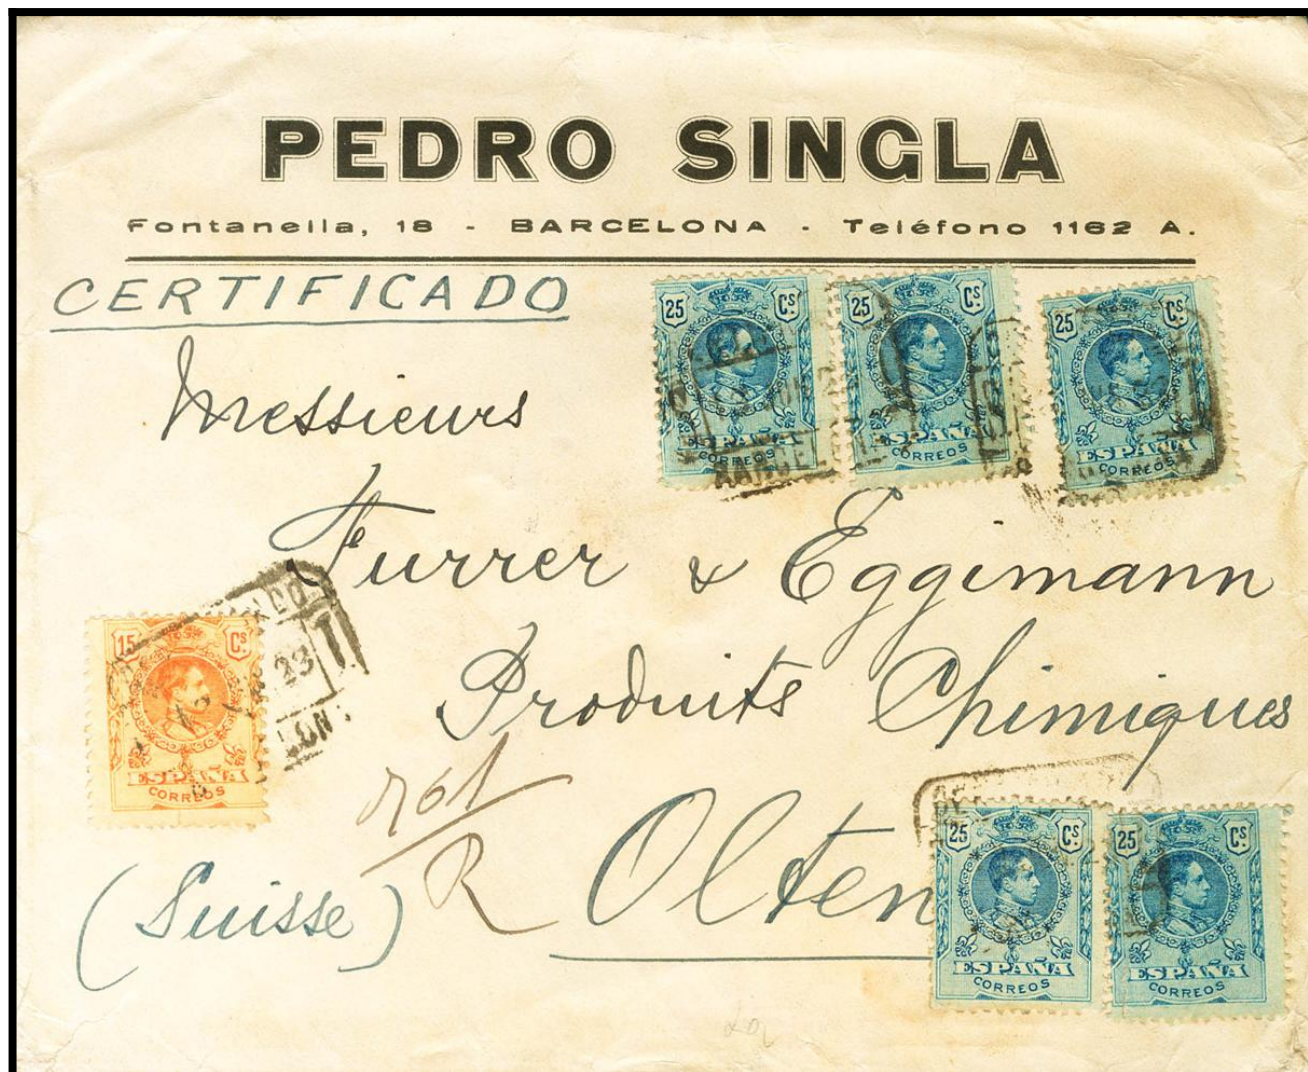 PEDRO SINGLA
Fontanella, 18 - BARCELONA - Teléfono 1162 A.
CERTIFICADO
25 Cs
ESPAÑA
CORREOS
25 Cs
ESPAÑA
CORREOS
25 Cs
ESPAÑA
CORREOS
Messieurs
Furrer & Eggimann
15 Cs
ESPAÑA
CORREOS
23
Produits Chimiques
R
Olten
(Suisse)
25 Cs
ESPAÑA
CORREOS
25 Cs
ESPAÑA
CORREOS